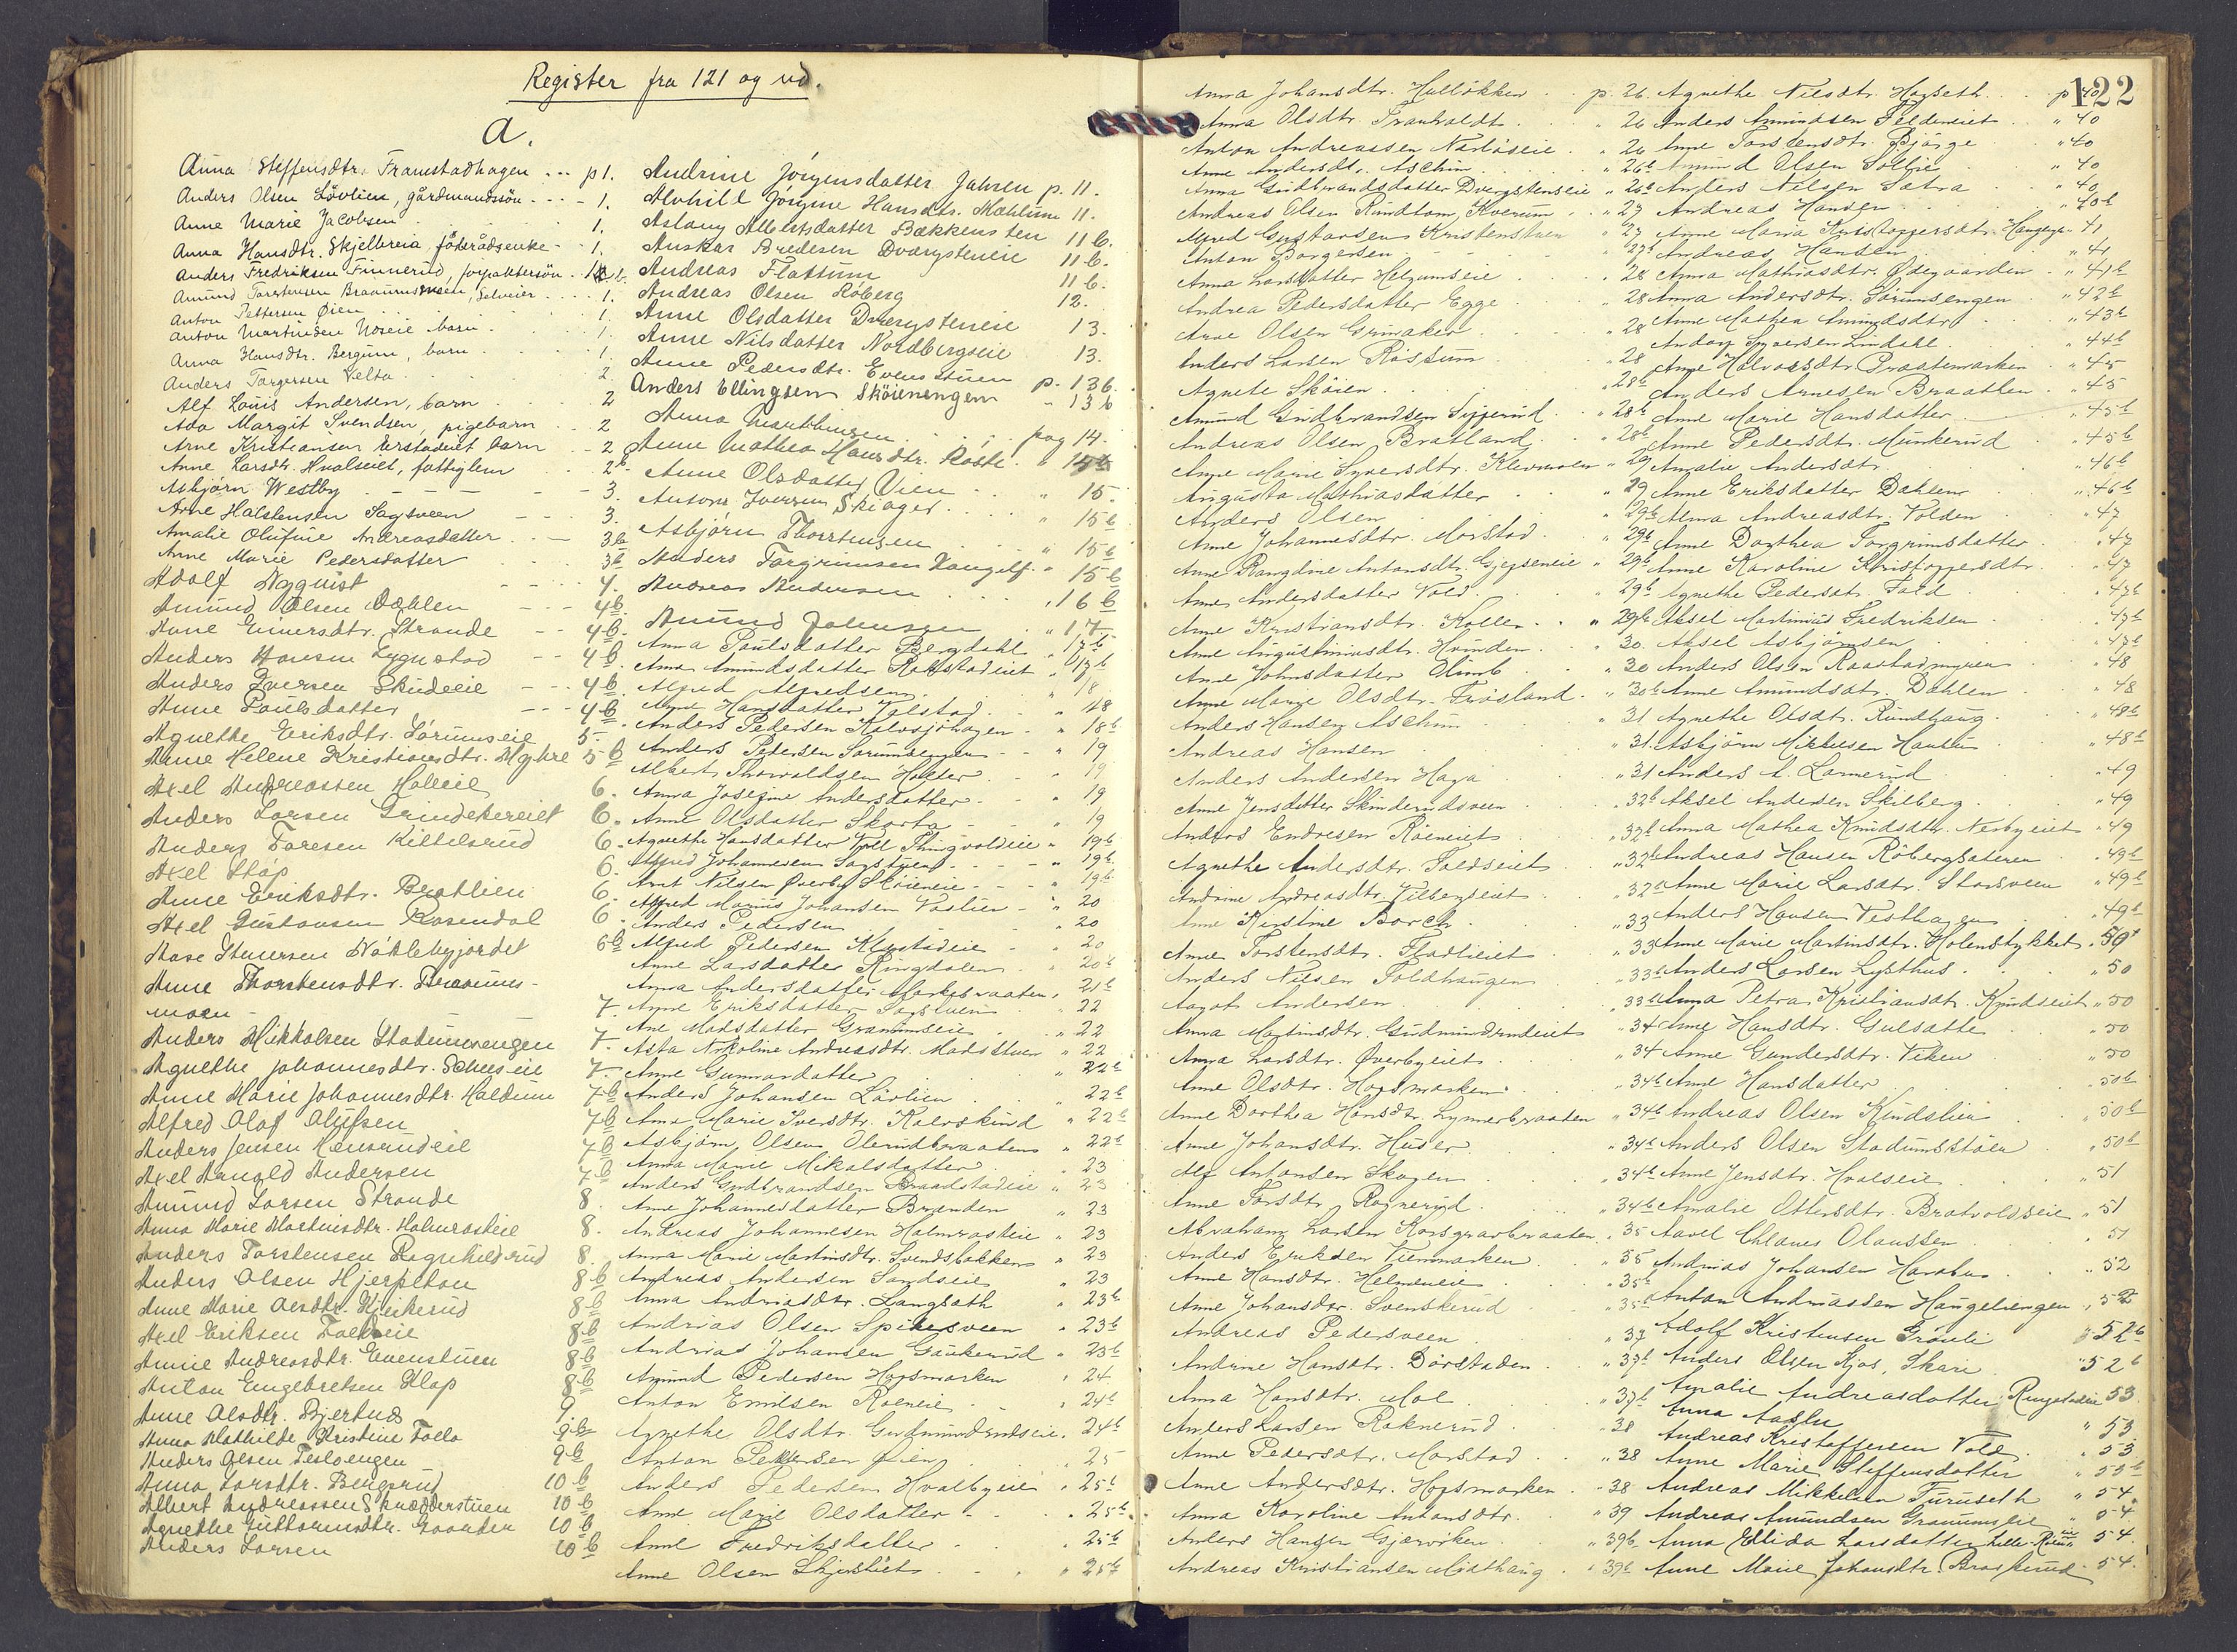 Register fra 121 og ud.
A.
Anna Steffensdtr. Framstadhagen p 1.
Anders Olsen Lövlien, gårdmandssön 1.
Anne Marie Jacobsen 1.
Anna Hansdtr. Skjelbreia, föderådsenke 1.
Anders Fredriksen Finnerud, forpaktersön
Amund Torstensen Selveier 1.
Anton Pettersen Öien 1.
Anton Martinsen barn 1.
Anna Hansdtr. Bergum, barn 1.
Anders Torgersen Velta 2
Alf Louis Andersen, barn 2
Ada Margit Svendsen, pigebarn 2
Arne Kristiansen barn 2
Anne Larsdtr. Hvalseiet, fattiglem 2b
Asbjörn Westby 3.
Arne Halstensen Sagsveen 3.
Amalie Olufine Andreasdatter 3b
Anne Marie Pedersdatter 3b
Adolf Nyquist 4.
Amund Olsen Dæhlen 4b
Anne Einersdtr. Strande 4b.
Anders Hansen Lygnstad 4b.
Anders Iversen Skudeeie 4b.
Anne Paulsdatter 4b
Agnethe Eriksdtr. Lörumseie 5.
Anne Helene Kristiansdtr. Myhre 5b
Axel Andreassen Holteeie 6.
Anders Larsen Grindekereiet 6.
Anders Toresen Kittelsrud 6.
Axel Stöp 6.
Anne Eriksdtr. Bratlien 6
Axel Gustavsen Rosendal 6.
Aase Stenersen Nøklebyjordet 6b
Anne Thorstensdtr.
moen 7.
Anders Mikkelsen Stadumsengen 7.
Agnethe Johannesdtr. 7.
Anne Marie Johannesdtr. Haldum 7b
Alfred Olaf Olufsen 7b
Anders Jensen 7b
Axel Arnold Andersen 7b
Amund Larsen Strande 8.
Anna Marie Martinsdtr. Holmraskeie 8.
Anders Torstensen Ragnhildrud 8.
Anders Olsen Hjerpekon 8b
Anne Marie Olsdtr. Kjeikerud 8b
Axel Eriksen 8b
Annie Andreasdtr. Evenstuen 8b
Anton Engebretsen Klop 8b
Anne Olsdtr. Bjertnæs 9
Anna Mathilde Kristine Follo 9b
Anders Olsen Tesloengen 9b
Anna Larsdtr. Bergsrud 10b
Albert Andreassen Skrædderstuen 10b
Agnethe Guttormsdtr. Gaarder 10b
Anders Larsen 10b
Andrine Jörgensdatter Jahren p. 11.
Alvhild Jörgine Hansdtr. Mæhlum 11.
Aslaug Albertsdatter Bækkensten 11b.
Anskar Bredesen Dvergsteneie 11b.
Andreas Flattum 11b.
Andreas Olsen Röberg 12.
Anne Olsdatter Dvergsteneie 13.
Anne Nilsdatter Nordbergseie 13.
Anne Pedersdtr. Evenstuen p. 13b.
Anders Ellingsen Sköienengen 13b
Anna Marthinsen pag 14.
Anne Mathea Hansdtr. Roste
Anne Olsdatter Vien 15.
Antonn Iversen Skiager 15b
Asbjörn Thorstensen 15b
Anders Torgrimsen Haugelf. 15b
Andreas Andersen 16b
Amund Johnsen 17
Anna Paulsdatter Bergdahl 17b
Anna Amundsdatter Rolvstadeiet 17b
Alfred Alfredsen 18
Anne Hansdatter Velstad 18
Anders Pedersen Kolvsjöhagen 18b
Anders Pedersen Sørumsengen 19
Albert Thorvaldsen Holter 19
Anna Josefine Andersdatter 19
Anne Olsdatter Skorta 19
Agnethe Hansdatter Voll Thingvoldeie 19b
Alfred Johannesen Sagstuen 19b
Arnt Nilsen Øverby Sköieneie 19b
Alfred Marius Johansen Vaslien 20
Anders Pedersen 20
Alfred Pedersen 20
Anne Larsdatter Ringdalen 20b
Anna Andersdatter Mørkebraaten 21b
Anne Eriksdatter Sagstuen 22
Ane Madsdatter Granumseie 22
Asta Nikoline Andreasdtr. Madsstuen 22
Anne Gunnarsdatter 22b
Anders Johansen Lövlien 22b
Ane Marie Iversdtr. Kalvskind 22b
Asbjörn Olsen Olerudbraaten 22b
Anna Marie Mikalsdatter 23
Anders Gudbrandsen Braadstadeie 23
Anne Johannesdatter Brænden 23
Andreas Johannesen Holmraskeie 23
Anna Marie Martinsdtr. Svendsbakken 23
Andreas Andersen Sandseie 23
Anna Andreasdtr. Langsæth 23b
Andreas Olsen Spikesveen 23b
Andreas Johansen Gaukerud 23b
Amund Pedersen Hogsmarken 24
Anton Emilsen Roeneie 24b
Agnethe Olsdtr. Gudmundrudseie 24b
Anton Pettersen Öien 25
Anders Pedersen Hvalbyeie 25b
Anne Marie Olsdatter 25b
Anne Fredriksdatter 25b
Anne Olsen 25b
122
Anna Johansdtr. Hallökken p. 26.
Anna Olsdtr. Tranholdt 26
Anton Andreassen 26
Anne Andersdtr. Aschim 26b
Anna Gudbrandsdatter Dvergsteneie 26b
Andreas Olsen Rundtom, Kverum 27
Alfred Gustavsen Kristenstuen 27
Anton Borgersen 27b
Anna Larsdatter Helgumseie 28
Andrea Pedersdatter Egge 28
Arne Olsen Grinaker 28
Anders Larsen Røssum 28
Agnete Sköien 28b
Amund Gudbrandsen 28b
Andreas Olsen Bratland 28b
Anne Marie Syversdtr. Klevmoen 29
Augusta Mathiasdatter 29
Anders Olsen 29b
Anne Johannesdtr. Morstad 29b
Anne Rangdine Antonsdtr. 29b
Anne Andersdatter Vold 29b
Anne Kristiansdtr. Koller 29b
Anne Augustinusdtr. Hvinden 30.
Anne Johnsdatter Olimb 30
Anne Marie Olsdtr. Frösland 30b
Anders Hansen Aschim 31
Andreas Hansen 31.
Anders Andersen Haga 31
Anne Jensdatter Skinderudsveen 32b
Anders Endresen Röeneiet 32b
Agnethe Andersdtr. Foldseiet 32b
Andrine Andreasdtr. Vilbergseiet 32b
Anne Kirstine Borch 33
Anne Torstensdtr. 33
Anders Nilsen Foldhaugen 33b
Aagot Andersen 33b
Anna Martinsdtr. Gudmundrudeiet 34
Anna Larsdtr. Øverbyeiet 34
Anne Olsdtr. Hogsmarken 34b
Anne Dorthea Hansdtr. Lynnerbraaten 34b
Anne Johansdtr. Huser 34b
Alf Antonsen Skogen 34b
Anne Torsdtr. Rognerud 34b
Abraham Larsen 35
Anders Eriksen Viemarken 35
Anne Hansdtr. Helmeneie 35b
Anne Johansdtr. Svenskerud 35b
Andreas Pedersveen 37
Andrine Hansdtr. Dörstaden 37b
Anna Hansdtr. Moe 37b
Anders Larsen Roknerud 38
Anne Pedersdtr. Morstad 38
Anne Andersdtr. Hogsmarken 38
Anna Karoline Antonsdtr. 39
Anders Hansen Gjærviken 39b.
Andreas Kristiansen Midthaug 39b
Agnethe Nilsdtr. Hogseth p 40
Anders Amundsen 40
Anne Torstensdtr. Bjørge 40
Amund Olsen 40
Anders Nilsen Sætra 40
Andreas Hansen 40b
Anne Maria Kristoffersdtr. 41
Andreas Hansen 41
Anna Mathiasdtr. Ødegaarden 41b
Anna Andersdtr. Sørumsengen 42b
Anne Mathea Amundsdtr. 43b
Andor Syversen Lindahl 44b
Anne Halvorsdtr. Braatemarken 45
Anders Arnesen Braathen 45
Anne Marie Hansdatter 45b
Anne Pedersdtr. Munkerud 45b
Amalie Andersdtr. 46b
Anne Eriksdatter Dæhlen 46b
Alma Andreasdtr. Volden 47
Anne Dorthea Torgrimsdatter 47
Anne Karoline Kristoffersdtr. 47
Agnethe Pedersdtr. Fald 47b
Aksel Martinius Fredriksen 47b
Aksel Asbjörnsen 47b
Anders Olsen Raastadmyren 48
Anne Amundsdtr. Dæhlen 48
Agnethe Olsdtr. Rundhaug 48b
Asbjörn Mikkelsen 48b
Anders A. Lomerud 49
Aksel Andersen Skilberg 49
Anna Mathea Knudsdtr. Nerbyeiet 49
Andreas Hansen Röbergsæteren 49b
Anne Marie Larsdtr. Starsveen 49b
Anders Hansen Vesthagen 49b
Anne Marie Martinsdtr. Holenstykket 50
Anders Larsen Lysthus 50
Anna Petra Kristiansdtr. Knudseiet 50
Anne Hansdtr. Gulsatte 50
Anne Gundersdtr. Viken 50
Anne Hansdatter 50b
Andreas Olsen Kindslien 50b
Anders Olsen Stadumsstöen 50b
Anne Jensdtr. Hvalseie 51
Amalie Ottersdtr. Bratvoldseie 51
Aavel Chlaues Olaussen 51
Andreas Johansen 52
Anton Andreassen Haugelsengen 52
Adolf Kristensen Grönli 52b
Anders Olsen Kjos, Skari 52b
Amalie Andreasdotter Ringstadeie 53
Anna Aaslu 53
Andreas Kristoffersen Vold 53
Anne Marie Steffensdotter 53b
Andreas Mikkelsen Furuseth 54
Andreas Amundsen Granumseie 54
Anna Ellida Larsdatter 54.
Anne Marie Johansdtr. Braskerud 54.